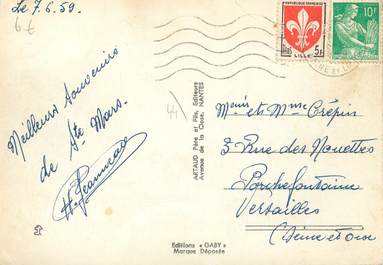 Le 7.6.59.
6 €
Meilleurs Souvenirs
de Ste Mars.
H. Jeanneau
41
ARTAUD Père et Fils, Editeurs
Avenue de la Close, NANTES
Editions « GABY »
Marque Déposée
REPUBLIQUE FRANCAISE
5F
LILLE
10F
Mr et Mme Crépin
3 Rue des Nouettes
Porchefontaine
Versailles
(Seine et Oise)